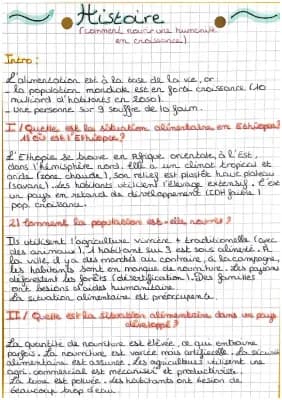 Histoire
(comment nourir une humanité
en croissance)
Intro :
L'alimentation est à la base de la vie, or
- la population mondiale est en forte croissance (10
milliard d'habitants en 2050).
- une personne sur 9 souffre de la faim.
I / Quelle est la situation alimentaire en Ethiopie?
1) où est l'Ethiopie?
L'Ethiopie se trouve en Afrique orientale, à l'Est,
dans l'hémisphère nord. Elle a un climat tropical et
aride (zone chaude), son relief est plutôt haut plateau
(savane). Les habitants utilisent l'élevage extensif. C'est
un pays en retard de développement (IDH faible)
pop. croissance.
2) Comment la population est-elle nourrie ?
Ils utilisent l'agriculture vivrière + traditionnelle (avec
des animaux). 1 habitant sur 3 est sous alimenté. A
la ville, il y a des marchés au contraire, à la campagne,
les habitants sont en manque de nourriture. Les paysans
défrichent les forêts (désertification). Des familles
ont besoin d'aides humanitaire.
La situation alimentaire est préoccupante.
II / Quelle est la situation alimentaire dans un pays
développé ?
La quantité de nourriture est élevée, ce qui entraine
parfois. La nourriture est variée mais artificielle. La sécurité
alimentaire est assurée. Les agriculteurs utilisent une
agri. commercial est mécanisée et productiviste.
La terre est polluée. Les habitants ont besoin de
beaucoup trop d'eau.